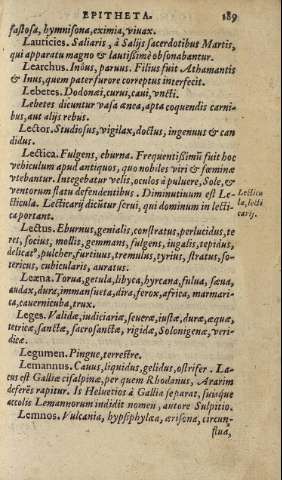 EPITHETA. 189
fastosa, hymnisona, eximia, viuax.
Lauticies. Saliaris, à Salijs sacerdotibus Martis,
qui apparatu magno & lautissimè obsonabantur.
Learchus. Inous, paruus. Filius fuit Athamantis
& Inus, quem pater furore correptus interfecit.
Lebetes. Dodonæi, curui, caui, vncti.
Lebetes dicuntur vasa ænea, apta coquendis carni-
bus, aut alijs rebus.
Lector. Studiosus, vigilax, doctus, ingenuus & can
didus.
Lectica. Fulgens, eburna. Frequentissimũ fuit hoc
vehiculum apud antiquos, quo nobiles viri & fœminæ
vtebantur. Integebatur velis, occiosos à puluere, Sole, &
ventorum flatu defendentibus. Diminutiuum est Le-
cticula. Lecticarij dicũtur serui, qui dominum in lecti-
ca portant.
Lecticu
la, lecti
carij.
Lectus. Eburnus, genialis, constratus, perlucidus, te
res, socius, mollis, gemmans, fulgens, iugalis, tepidus,
delicatꝰ, pulcher, furtiuus, tremulus, tyrius, stratus, so-
tericus, cubicularis, auratus.
Leæna. Torua, getula, libyca, hyrcana, fulua, sæua,
audax, dura, immansueta, dira, ferox, africa, marmari-
ca, cauernicuba, trux.
Leges. Validæ, iudiciariæ, seueræ, iustæ, duræ, æquæ,
tetricæ, sanctæ, sacrosanctæ, rigidæ, Solonigenæ, veri-
dicæ.
Legumen. Pingue, terrestre.
Lemannus. Cauus, liquidus, gelidus, ostrifer. La-
cus est Galliæ cisalpinæ, per quem Rhodanus, Ararim
deferẽs rapitur. Is Heluetios à Gallia separat, suisque
accolis Lemannorum indidit nomen, autore Sulpitio.
Lemnos. Vulcania, hypsiphylæa, ærisona, circun-
flua,